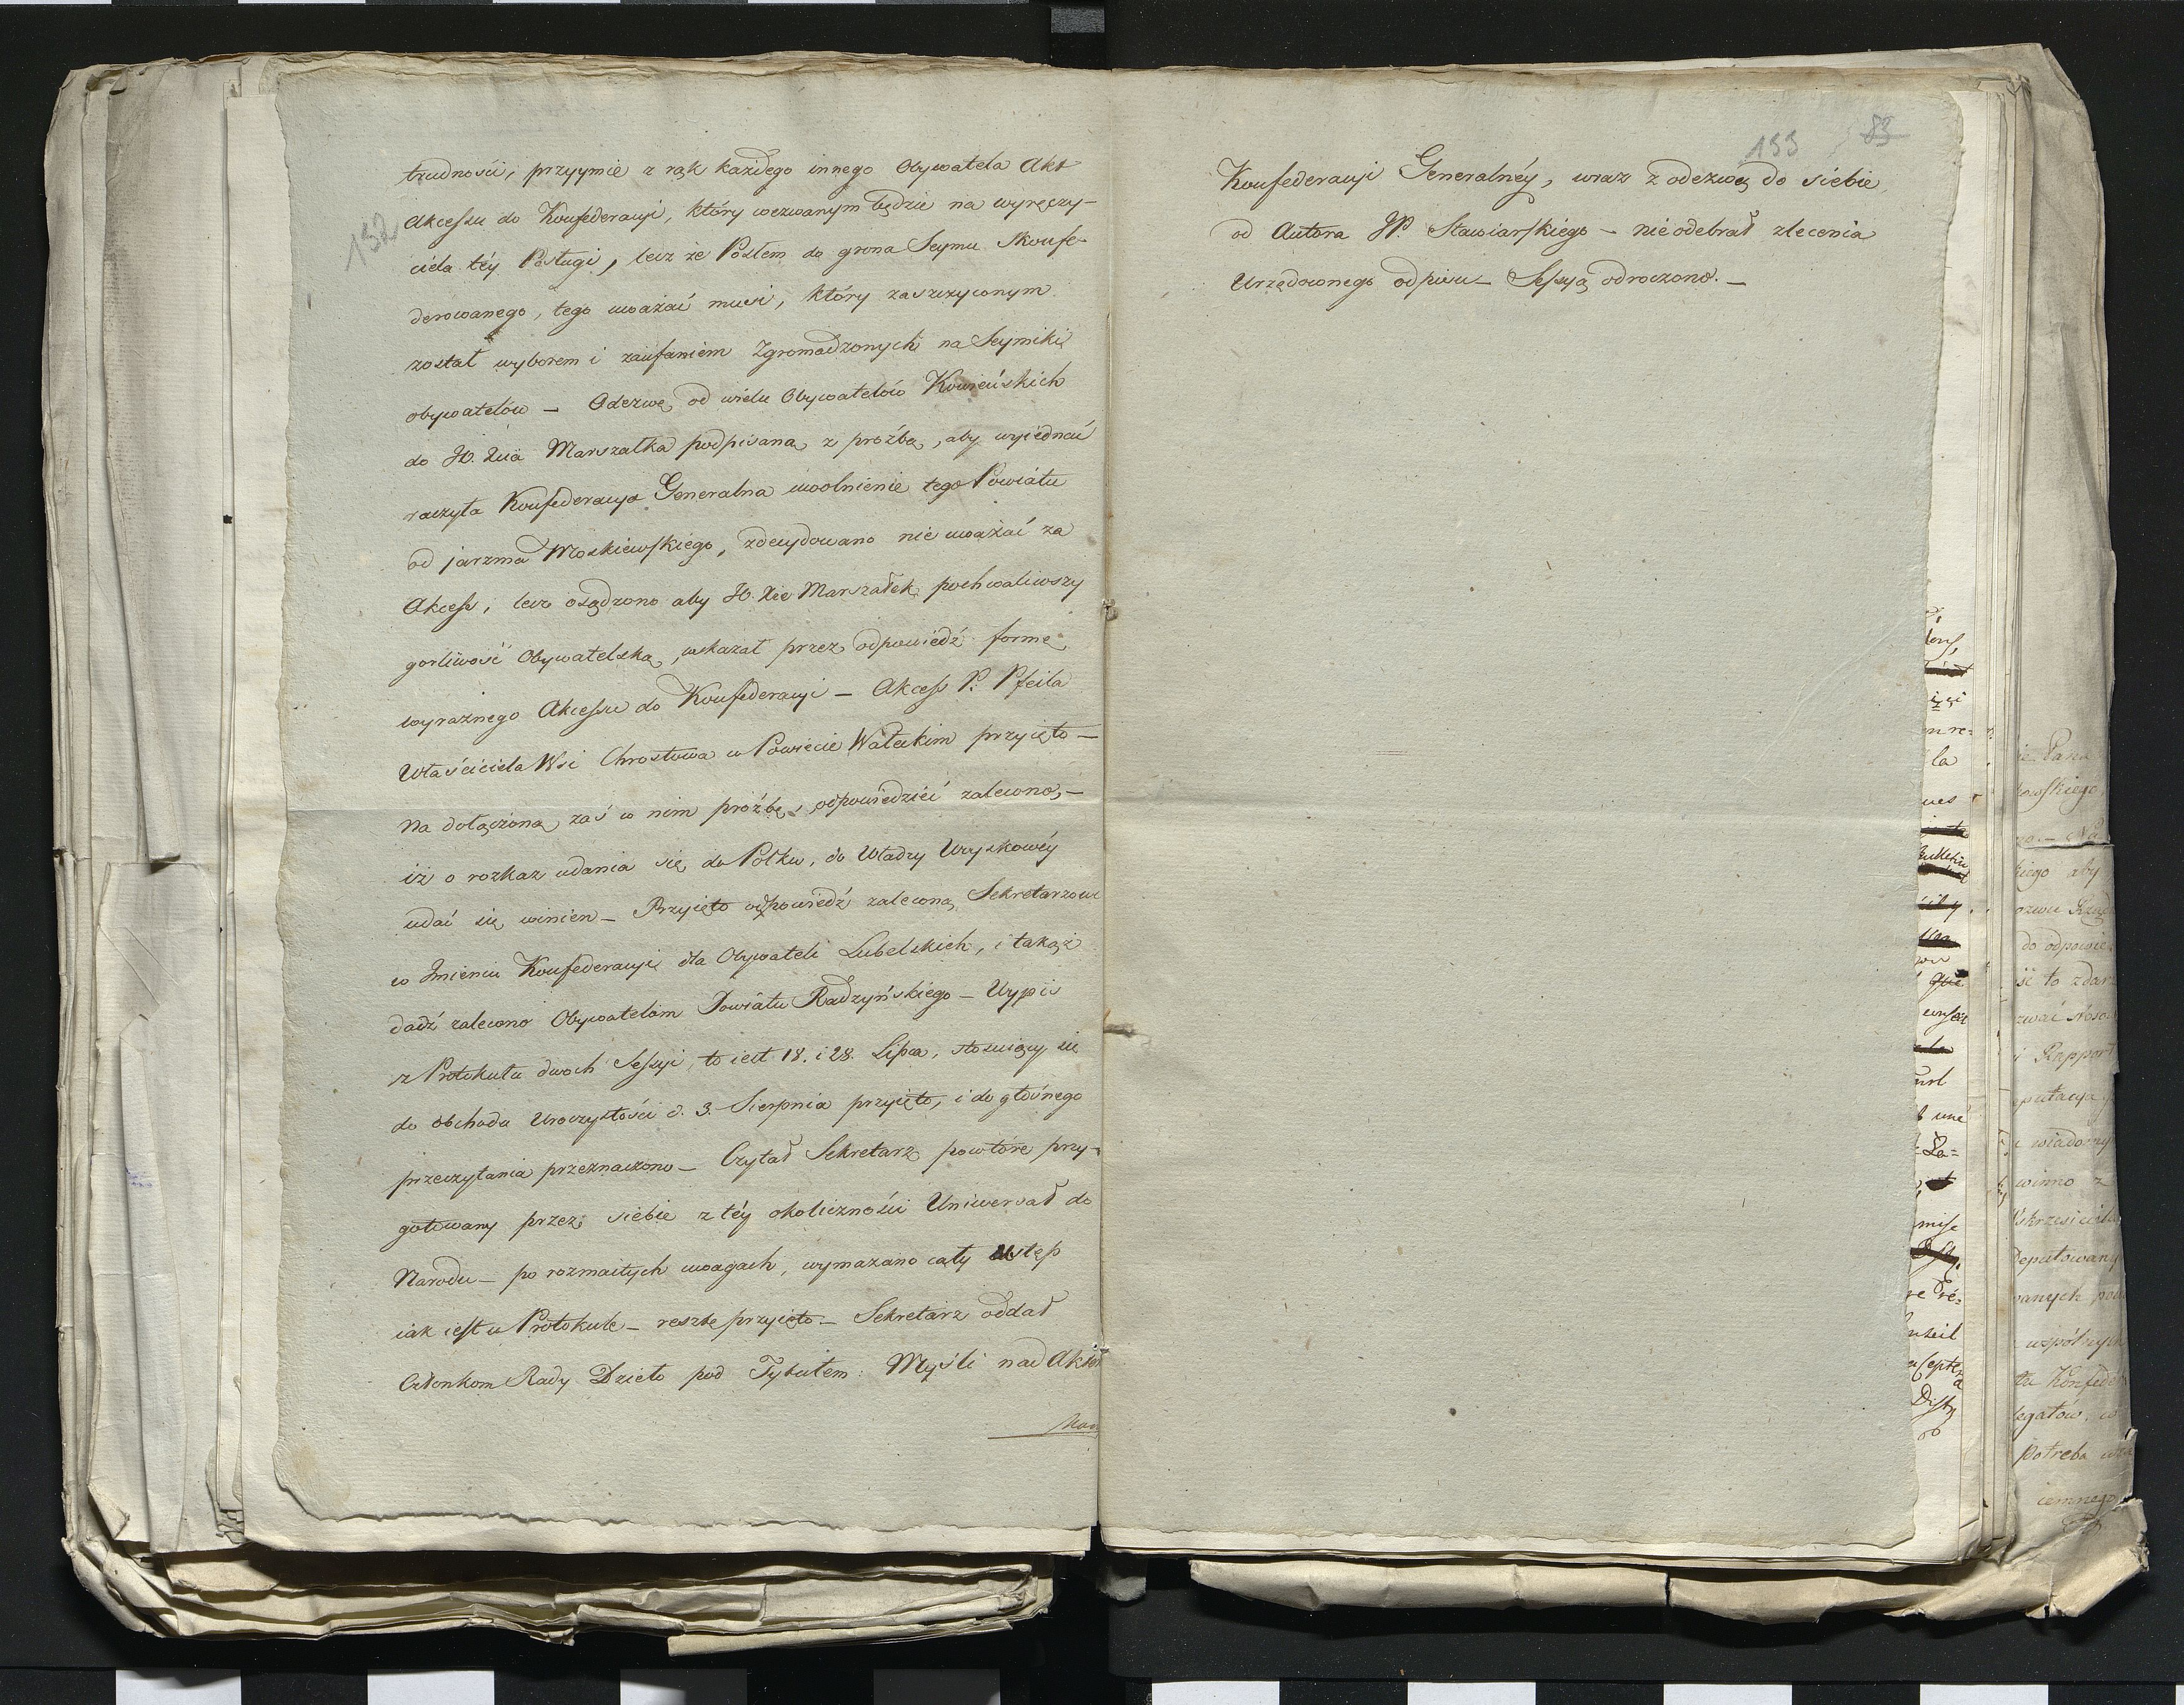 152
trudności, przyymie z rąk każdego innego Obywatela Akt
Akcessu do Konfederacyi, który wezwanym będzie na wyręczy-
ciela téy Posługi, lecz że Posłem do grona Seymu Skonfe-
derowanego, tego uważać musi, który zaszczyconym
został wyborem i zaufaniem Zgromadzonych na Seymiki
obywatelów — Odezwę od wielu Obywatelów Kowieńskich
do JO. Xcia Marszałka podpisaną z prożbą, aby wyiednać
raczyła Konfederacya Generalna uwolnienie tego Powiatu
od jarzma Moskiewskiego, zdecydowano nie uważać za
Akcess, lecz osądzono aby JO. Xże Marszałek pochwaliwszy
gorliwość Obywatelską, wskazał przez odpowiedź formę
wyraznego Akcessu do Konfederacyi — Akcess P. Pfeila
Właściciela Wsi Chrostowa w Powiecie Wałeckim przyięto —
na dołączoną zaś w nim prożbę, odpowiedzieć zalecono, —
iż o rozkaz udania się do Półku, do Władzy Woyskowéy
udać się winien — Przyięto odpowiedź zaleconą Sekretarzowi
w Imieniu Konfederacyi dla Obywateli Lubelskich, i takąż
dadź zalecono Obywatelom Powiatu Radzyńskiego — Wypis
z Protokułu dwoch Sessyi, to iest 18. i 28. Lipca, stosuiący się
do obchodu Uroczystości d. 3. Sierpnia przyięto, i do głównego
przeczytania przeznaczono — Czytał Sekretarz powtóre przy-
gotowany przez siebie z téy okoliczności Uniwersał do
Narodu — po rozmaitych uwagach, wymazano cały ustęp
iak iest w Protokule — resztę przyięto — Sekretarz oddał
Członkom Rady Dzieło pod Tytułem: Myśli nad Aktem
153 83
Konfederacyi Generalnéy, wraz z odezwą do siebie
od Autora JP. Stawiarskiego — nie odebrał zlecenia
Urzędowego odpisu — Sessyą odroczono. —